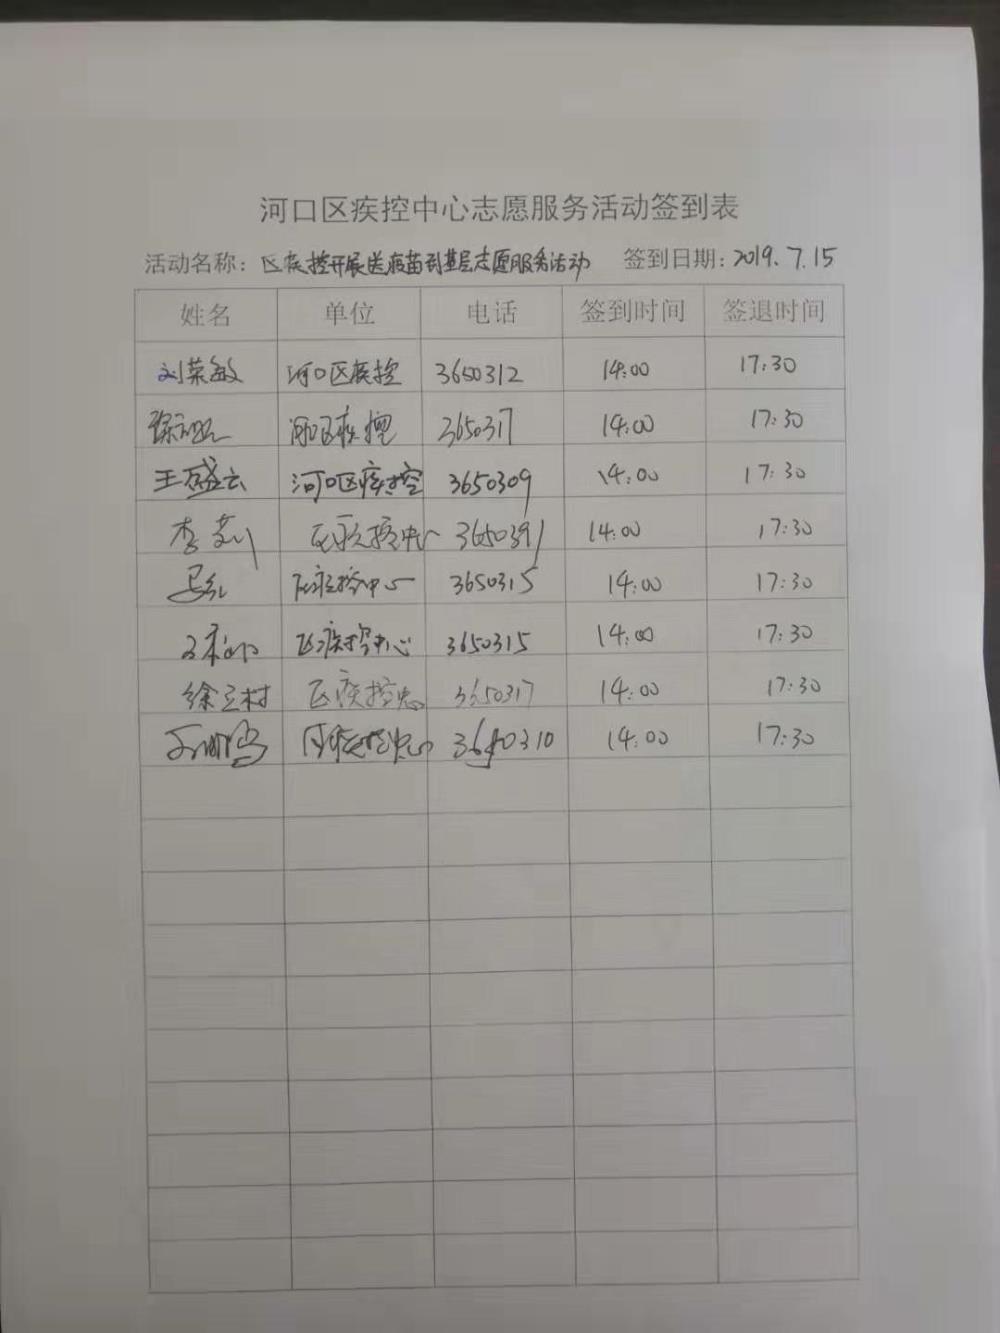 河口区疾控中心志愿服务活动签到表
活动名称：区疾控开展送疫苗到基层志愿服务活动 签到日期：2019.7.15
姓名 单位 电话 签到时间 签退时间
刘荣敏 河口区疾控 3650312 14:00 17:30
河口区疾控 3650317 14:00 17:30
王盛云 河口区疾控 3650309 14:00 17:30
李莉 区疾控中心 3650391 14:00 17:30
区疾控中心 3650315 14:00 17:30
区疾控中心 3650315 14:00 17:30
徐立村 区疾控中心 3650317 14:00 17:30
区疾控中心 3650310 14:00 17:30